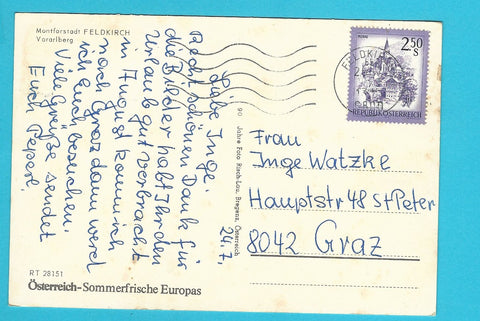 Montfortstadt FELDKIRCH
Vorarlberg
24.7.
Liebe Inge.
Recht schönen Dank für
die Bilder habt Ihr den
Urlaub gut verbracht
im August komm ich
nach Graz dann werd
ich Euch besuchen.
Viele Grüße sendet
Euch Peperl.
RT 28151
Österreich-Sommerfrische Europas
90 Jahre Foto Risch-Lau, Bregenz, Österreich
FELDKIRCH
2.50
S
REPUBLIK ÖSTERREICH
Frau
Inge Watzke
Hauptstr 48 St Peter
8042 Graz